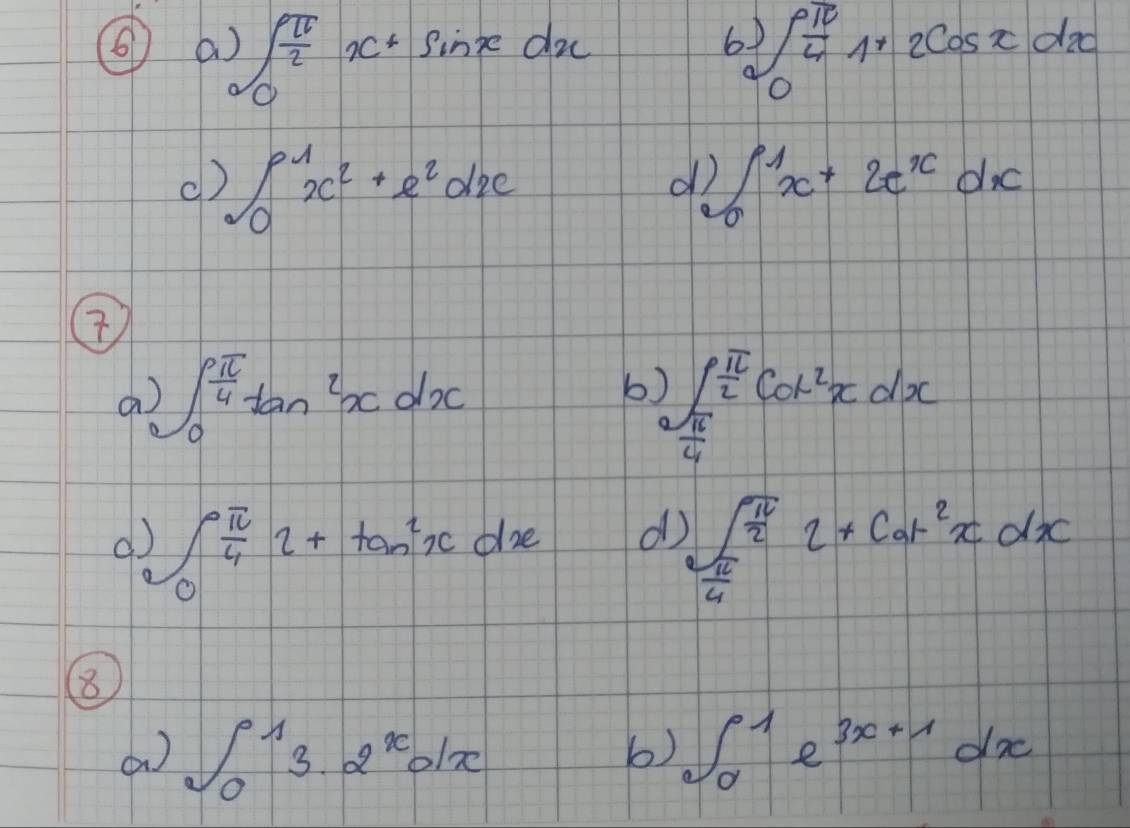 ⑥ a) ∫₀^(π/2) x + sinx dx b) ∫₀^(π/4) 1 + 2Cos x dx
c) ∫₀^1 x² + e² dx d) ∫₀^1 x + 2e^x dx
⑦
a) ∫₀^(π/4) tan²x dx b) ∫_(π/4)^(π/2) Cot²x dx
c) ∫₀^(π/4) 2 + tan²x dx d) ∫_(π/4)^(π/2) 2 + Cot²x dx
⑧
a) ∫₀^1 3 . 2^x dx b) ∫₀^1 e^(3x+1) dx